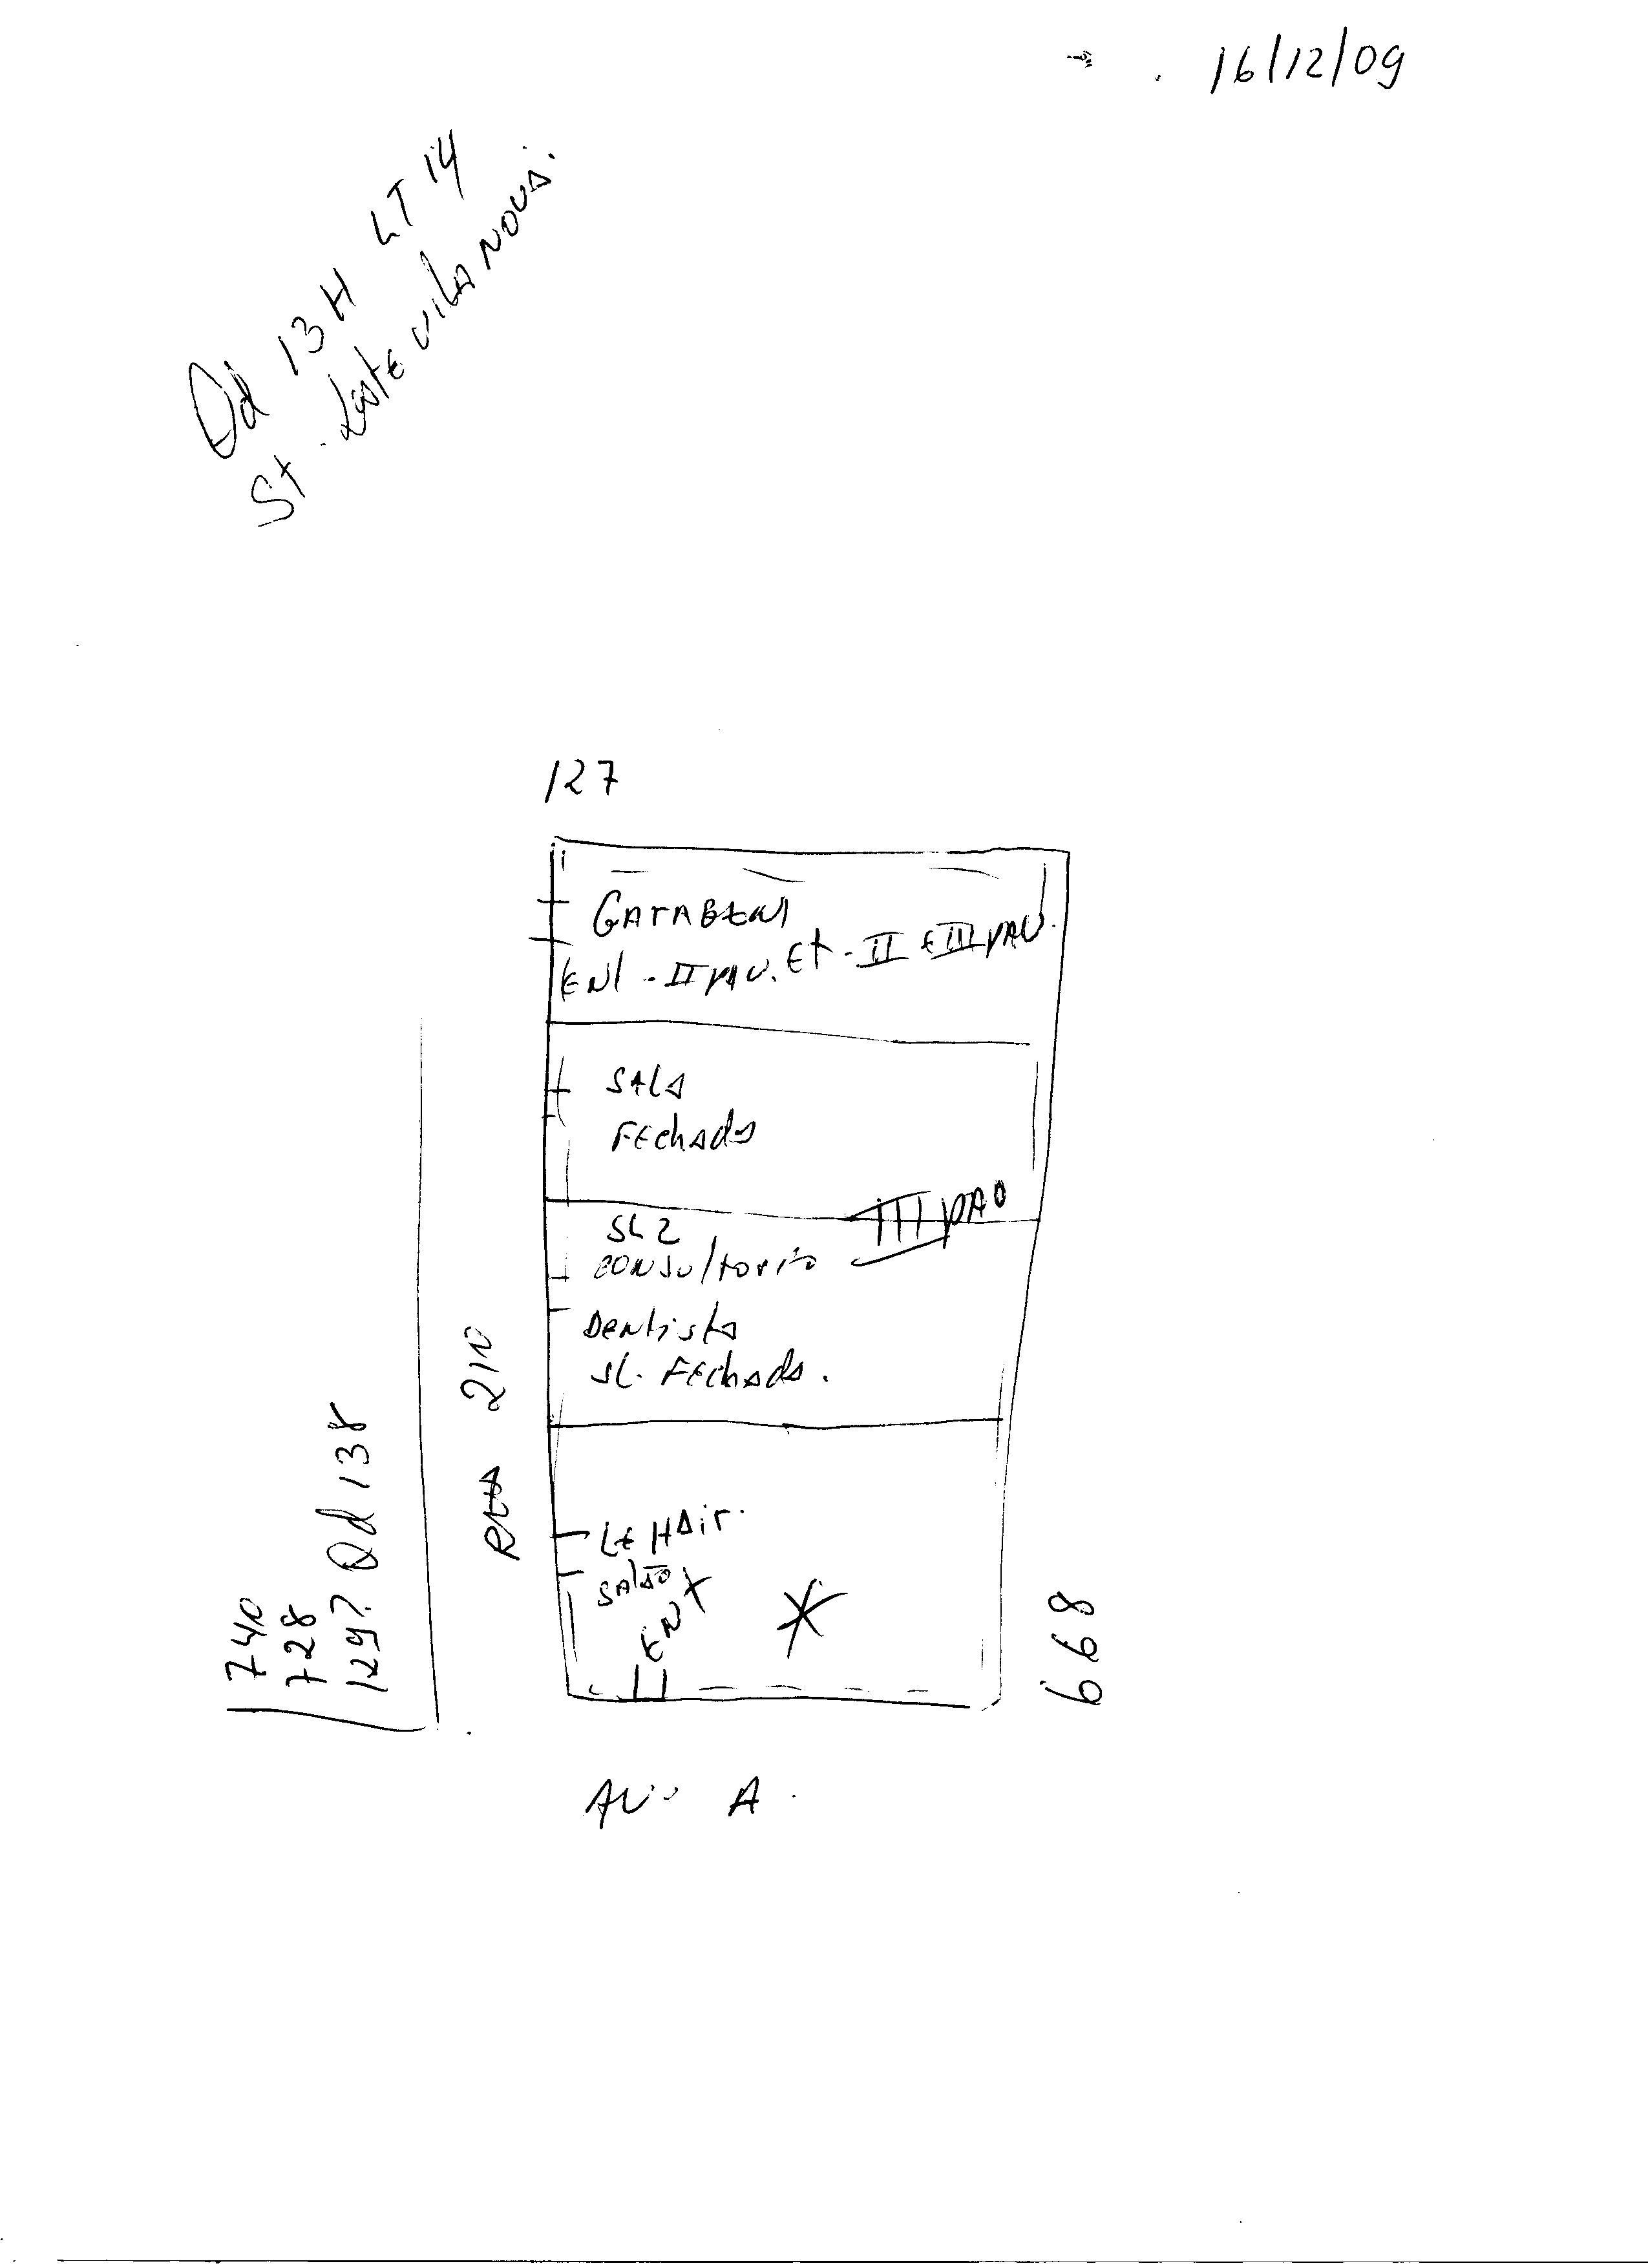 16/12/09
Qd 13H LT 14
St. Leste Vila Nova.
127
ENT - II PAV. Et - II E III PAV.
SALA
FEchada
III PAV
SL 2
CONSultorio
DENtista
SL. FEchada.
LE HAir.
SALÃO
ENT
RUA 210
740
728
129? Qd 138
668
AV. A.